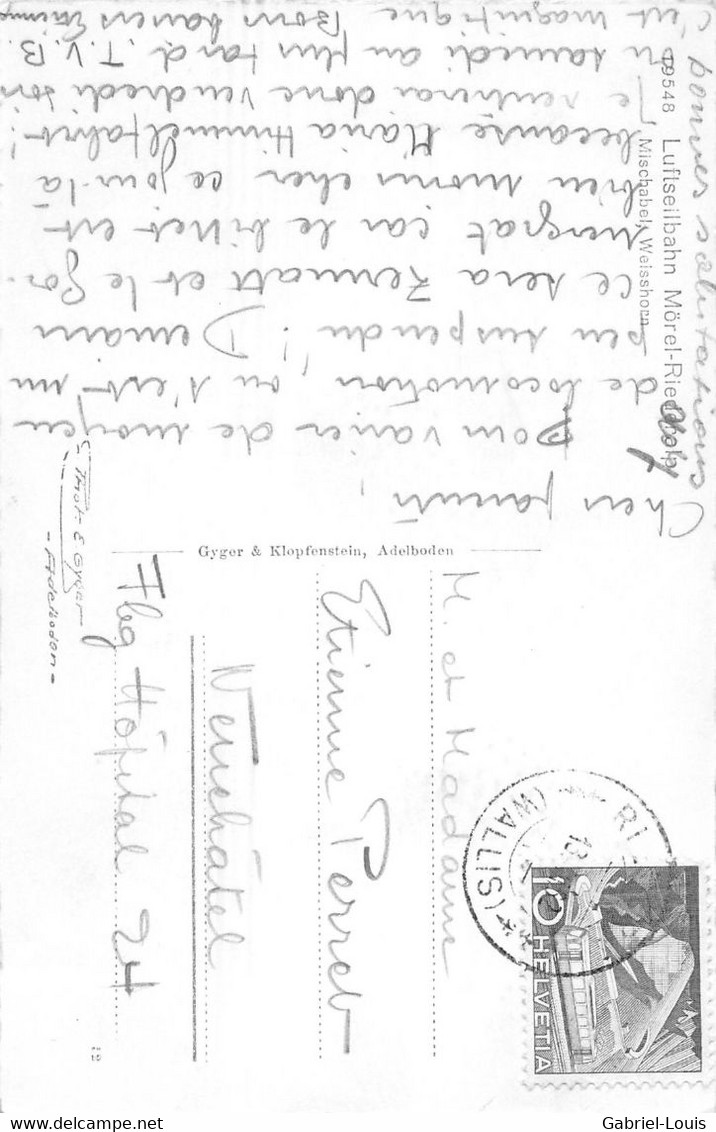 19548 Luftseilbahn Mörel-Riederalp
Mischabel, Weisshorn
Chers parents,
Pour varier de moyen
de locomotion, on s'est un
peu suspendu! Demain
ce sera Zermatt et le Gor-
nergrat car le billet est
bien moins cher ce jour-là
because Maria Himmelfahrt!
Je rentrerai donc vendredi soir
ou samedi au plus tard. T.V.B.
c'est magnifique Bons baisers
bonnes salutations
Gyger & Klopfenstein, Adelboden
Phot. E. Gyger
- Adelboden -
M. et Madame
Etienne Perret
Neuchâtel
Fbg Hôpital 24
12
(WALLIS)
10 HELVETIA
Gabriel-Louis